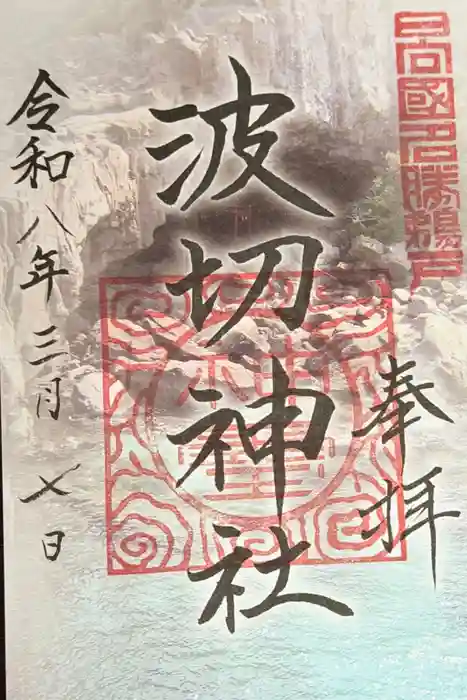 日向國名勝鵜戸
奉拝
波切神社
令和八年三月七日